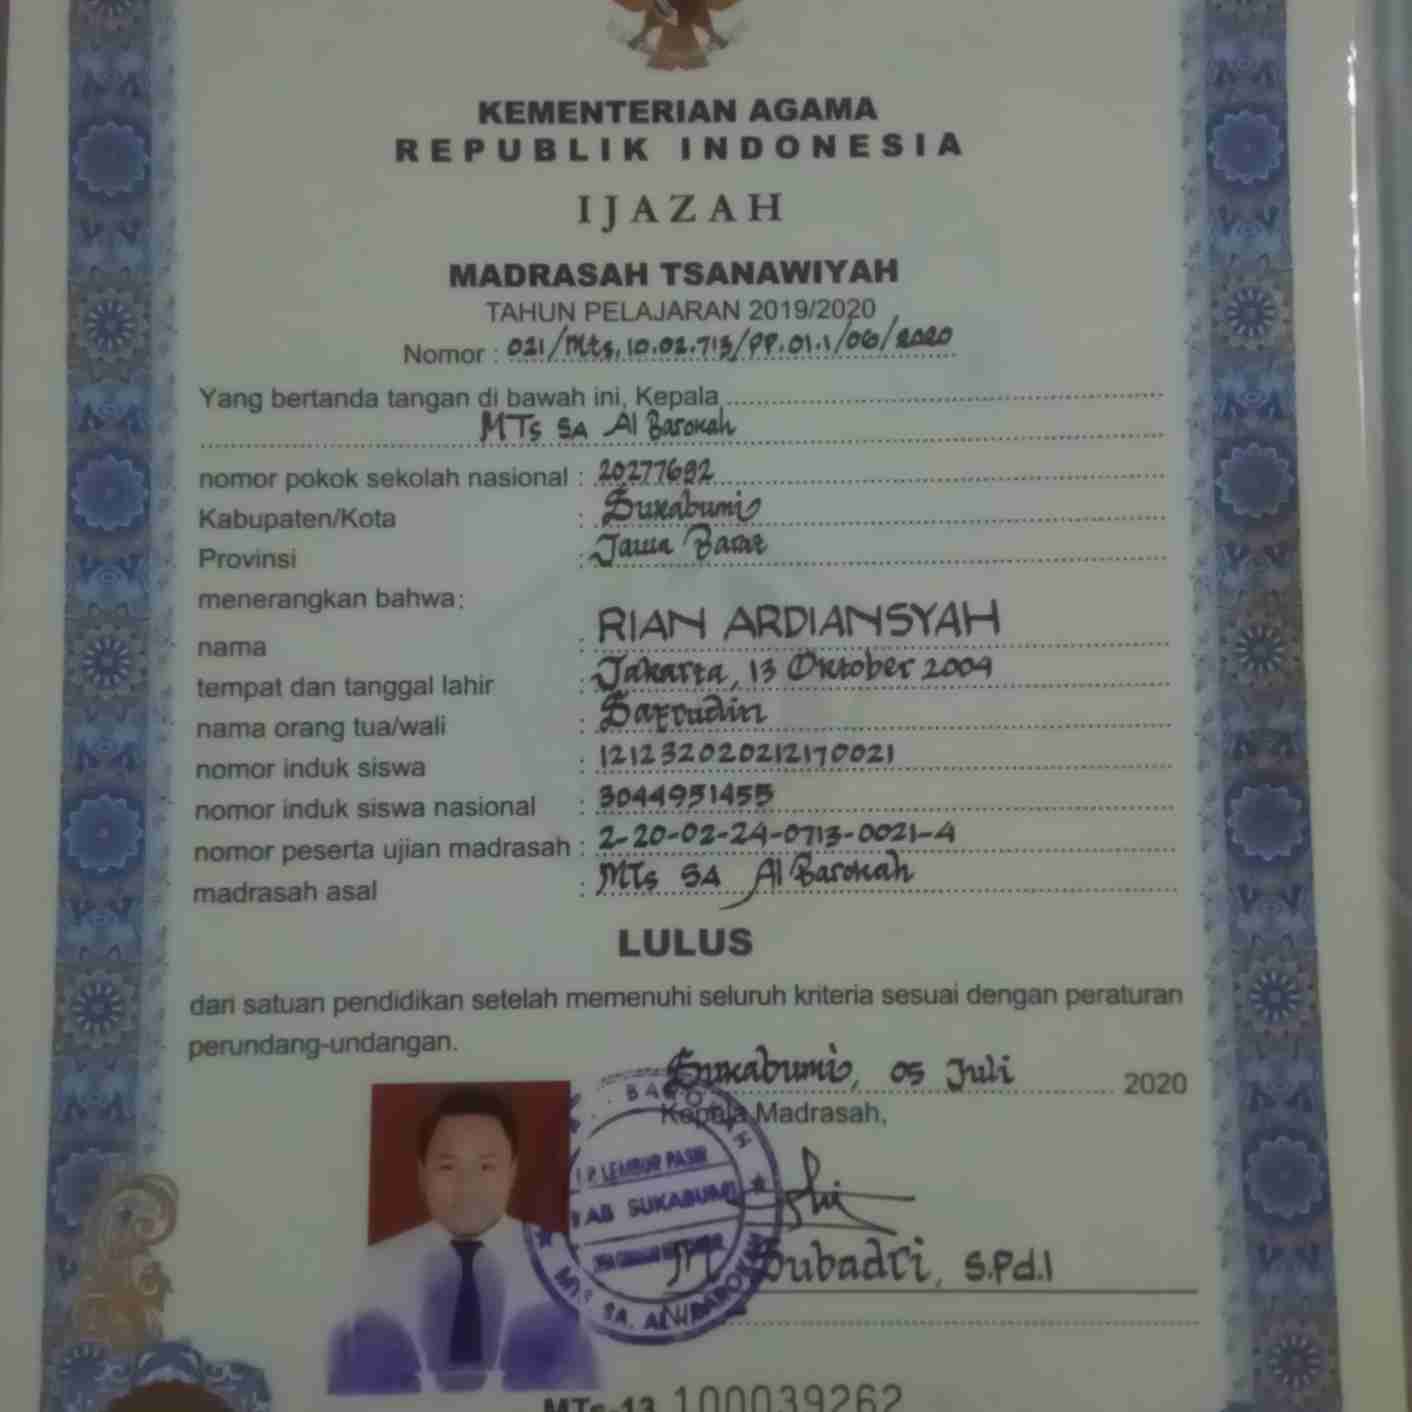 KEMENTERIAN AGAMA
REPUBLIK INDONESIA
IJAZAH
MADRASAH TSANAWIYAH
TAHUN PELAJARAN 2019/2020
Nomor : 021/Mts.10.02.713/PP.01.1/06/2020
Yang bertanda tangan di bawah ini, Kepala
MTs SA Al Barokah
nomor pokok sekolah nasional : 20277692
Kabupaten/Kota : Sukabumi
Provinsi : Jawa Barat
menerangkan bahwa:
nama : RIAN ARDIANSYAH
tempat dan tanggal lahir : Jakarta, 13 Oktober 2004
nama orang tua/wali : Safrudin
nomor induk siswa : 121232020212170021
nomor induk siswa nasional : 3044951455
nomor peserta ujian madrasah : 2-20-02-24-0713-0021-4
madrasah asal : MTs SA Al Barokah
LULUS
dari satuan pendidikan setelah memenuhi seluruh kriteria sesuai dengan peraturan
perundang-undangan.
Sukabumi, 05 Juli 2020
Kepala Madrasah,
LEMBUR PASIR
KAB SUKABUMI
MTs SA. AL BAROKAH
M Subadri, S.Pd.I
MTs-13 100039262